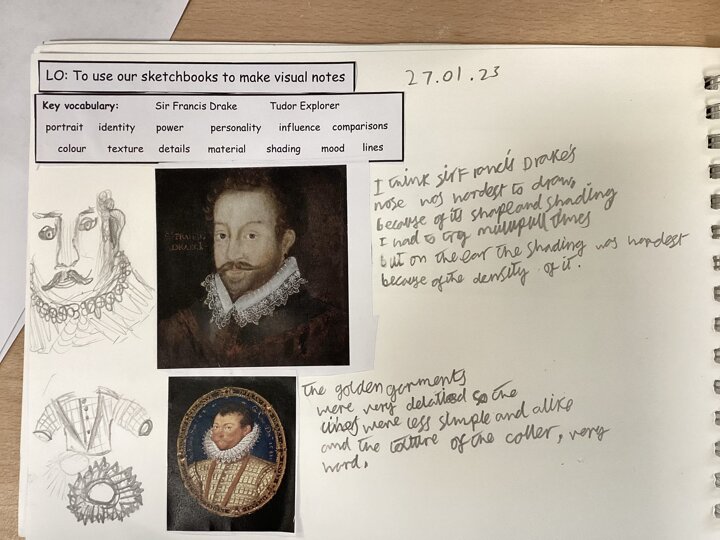 LO: To use our sketchbooks to make visual notes
27.01.23
Key vocabulary: Sir Francis Drake Tudor Explorer
portrait identity power personality influence comparisons
colour texture details material shading mood lines
I think sir Francis Drake's
nose was hardest to draw,
because of its shape and shading
I had to try multipull times
but on the ear the shading was hardest
because of the density of it.
the golden garments
were very detailed so the
lines were less simple and alike
and the of the coller, very
hard.